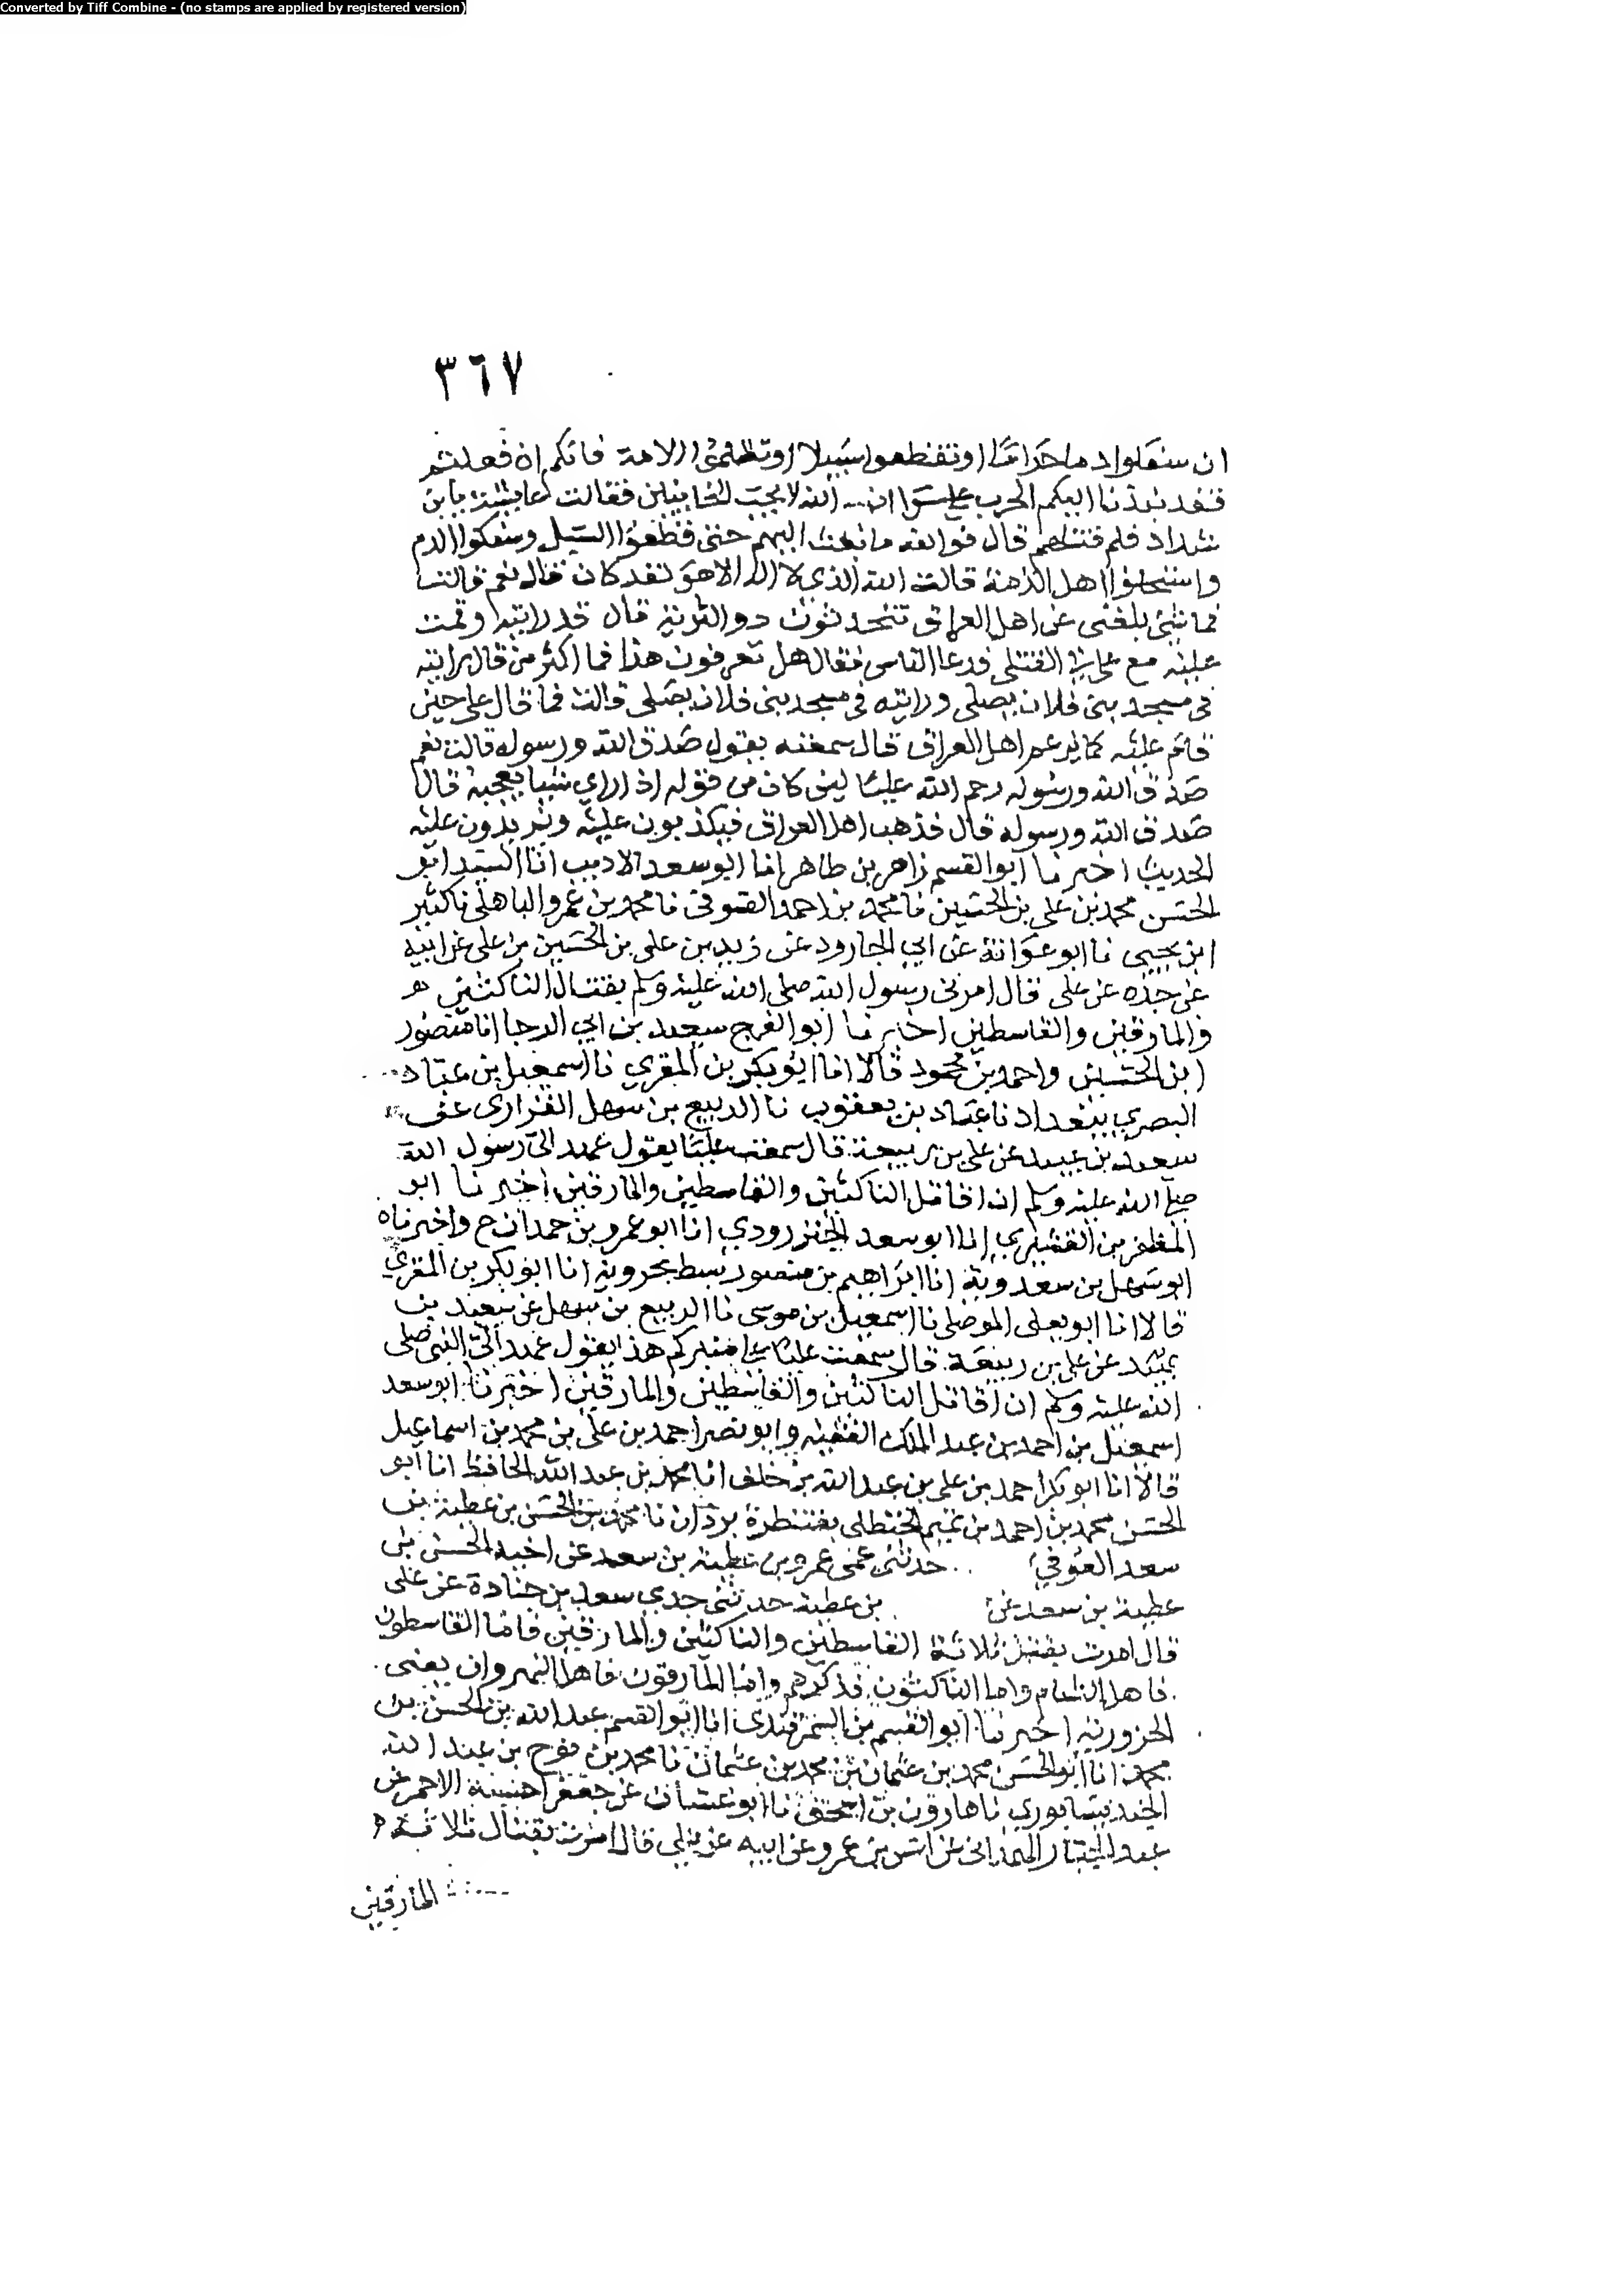 Converted by Tiff Combine - (no stamps are applied by registered version)
٣٦٧
ان سفكوا دما حراما او تقطعوا سبيلا او تظلموا الامة فانكم ان فعلتم
فقد نبذنا اليكم الحرب على سوا ان الله لا يحب الخاينين فقالت عايشة يا بن
شداد فلم قتلهم قال فوالله ما بعث اليهم حتى قطعوا السبيل وسفكوا الدم
واستحلوا اهل الذمة قالت الله الذي لا اله الا هو لقد كان قال نعم قالت
فما شى بلغنى عن اهل العراق تتحدثون ذو الثدية قال قد رايته وقمت
عليه مع على في القتلى فدعا الناس فقال هل تعرفون هذا فما اكثر من قال رايته
في مسجد بنى فلان يصلى ورايته في مسجد بنى فلان يصلى قالت فما قال على حين
قام عليه كما يزعم اهل العراق قال سمعته يقول صدق الله ورسوله قالت نعم
صدق الله ورسوله رحم الله عليا ليس كان من قوله اذا راي شيا يعجبه قال
صدق الله ورسوله قال فذهب اهل العراق فيكذبون عليه ويزيدون عليه
الحديث اخبرنا ابو القسم زاهر بن طاهر انا ابو سعد الاديب انا السيد ابو
الحسن محمد بن على بن الحسين نا محمد بن احمد الصوفى نا محمد بن عمرو الباهلى نا كثير
ابن يحيى نا ابو عوانة عن ابي الجارود عن زيد بن على بن الحسين بن على عن ابيه
عن جده عن على قال امرنى رسول الله صلى الله عليه وسلم بقتال الناكثين
والمارقين والقاسطين اخبرنا ابو الفرج سعيد بن ابي الرجا انا منصور
ابن الحسين واحمد بن محمود قالا انا ابو بكر بن المقري نا اسمعيل بن عباد
البصري ببغداد نا عباد بن يعقوب نا الربيع بن سهل الفزارى عن
سعيد بن عبيد عن على بن ربيعة قال سمعت عليا يقول عهد الى رسول الله
صلى الله عليه وسلم ان اقاتل الناكثين والقاسطين والمارقين اخبرنا ابو
المظفر بن القشيري انا ابو سعد الجنزرودي انا ابو عمرو بن حمدان ح واخبرناه
ابو سهل بن سعدوية انا ابراهيم بن منصور سبط بحروية انا ابو بكر بن المقري
قالا انا ابو يعلى الموصلى نا اسمعيل بن موسى نا الربيع بن سهل عن سعيد بن
عبيد عن على بن ربيعة قال سمعت عليا على منبركم هذا يقول عهد الى النبى صلى
الله عليه وسلم ان اقاتل الناكثين والقاسطين والمارقين اخبرنا ابو سعد
اسمعيل بن احمد بن عبد الملك الفقيه وابو نصر احمد بن على بن محمد بن اسماعيل
قالا انا ابو بكر احمد بن على بن عبد الله بن خلف انا محمد بن عبد الله الحافظ انا ابو
الحسن محمد بن احمد بن تميم الحنظلى بقنطرة بردان نا محمد بن الحسن بن عطية بن
سعد العوفي حدثنى عمى عمرو بن عطية بن سعد عن اخيه الحسن بن
عطية بن سعد عن بن عطية حدثنى جدى سعد بن جنادة عن على
قال امرت بقتل ثلاثة القاسطين والناكثين والمارقين فاما القاسطون
فاهل الشام واما الناكثون فذكرهم واما المارقون فاهل النهروان يعنى
الحرورية اخبرنا ابو القسم بن السمرقندى انا ابو القسم عبد الله بن الحسن بن
محمد انا ابو الحسن محمد بن عثمان بن محمد بن عثمان نا محمد بن نوح بن عبد الله
الجنديسابوري نا هارون بن اسحق نا ابو غسان عن جعفر الاحمر عن
عبد الجبار الهمدانى عن انس بن عمرو عن ابيه عن على قال امرت بقتال ثلاثة
المارقين